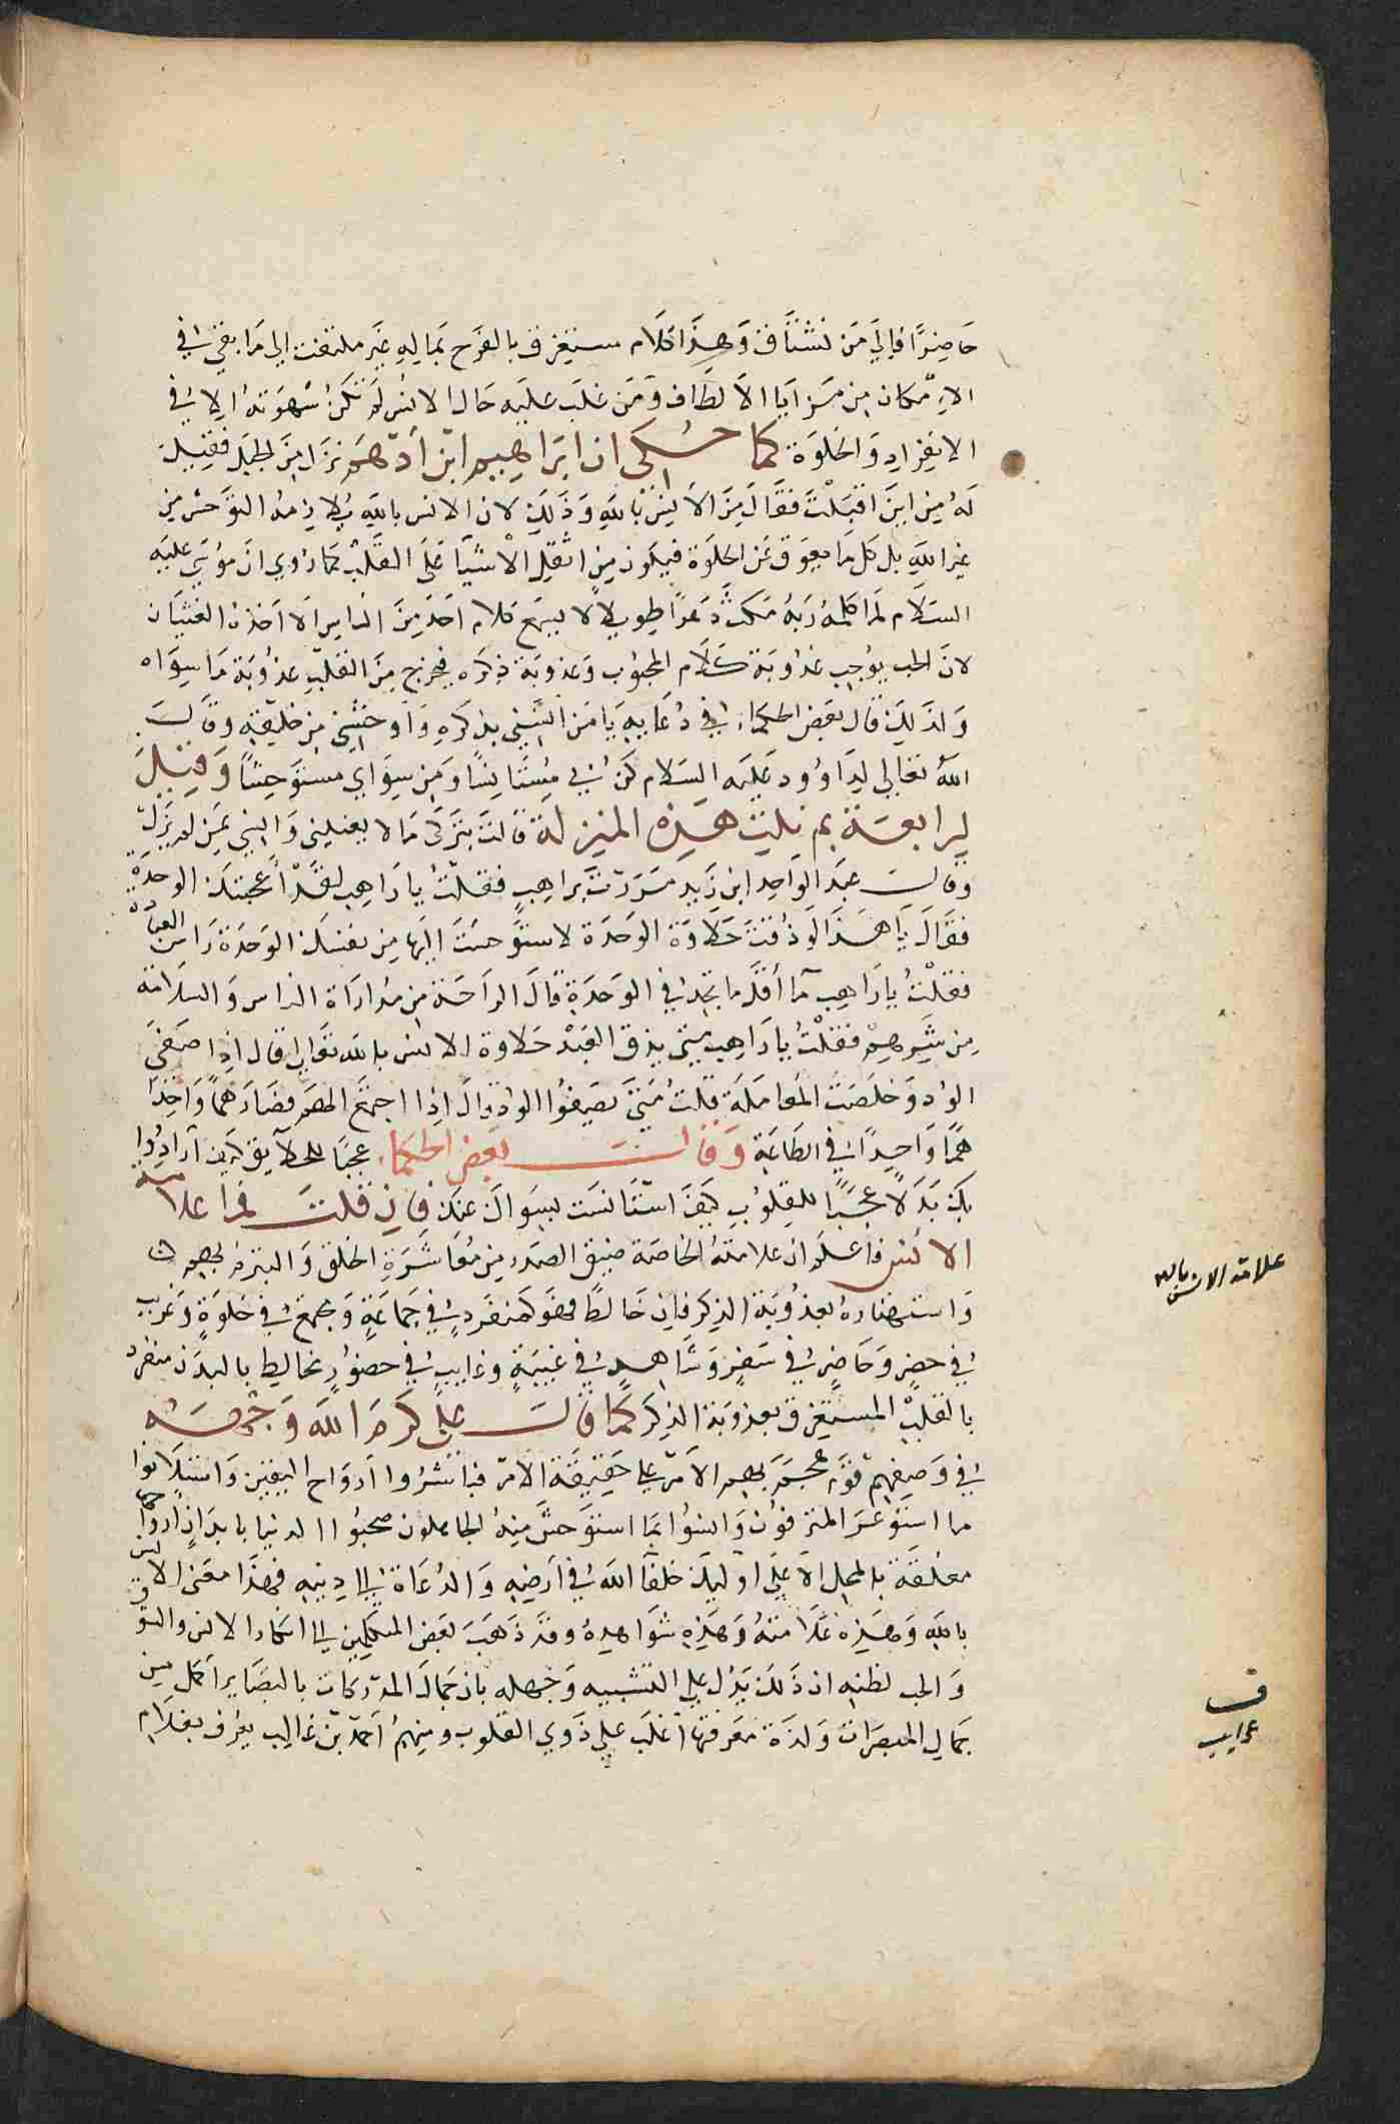 حَاضِرًا فإلي مَن نشتَاق وَهذا كلَام مستغرق بالفرَح بمَا لهِ غَير ملتفت الي مَا بقي في
الاِمْكان مِن مَزَايَا الألطَاف وَمَن غلَب عليَه حَال الانس لم تكن شهوَته الا في
الانفرادِ وَالخلوَة كما حُكي ان ابرَاهيم ابن أدّهَم نزَل مِنَ الجبَل فقيل
لَهُ مِن اينَ اقبَلْتَ فقَالَ مِنَ الأنسِ بالله وَذَلِكَ لان الانس بالله يُلازمهُ التوَحش مِن
غيرِ الله بل كل مَا يعوق عَن الخلوَة فيكون مِن اثقل الأشيَآ عَلَى القَلبْ كمَا روي انَ موسَي عليَه
السَلَام لمَا كلمهُ رَبهُ مَكث دَهرًا طويلا لا يسمع كلام احَدٍ مِنَ النَاسِ الا اخذهُ الغثيَان
لانَ الحب يوُجِب عذوبَة كلَام المحبوُب وَعذوبَة ذِكرَه فيخرج مِنَ القَلبِ عذُوبَة مَا سِوَاه
وَلذلِكَ قال بعَض الحكماء في دُعَايهِ يَا مَن آنسَني بذكرَهِ وَاوحشني مِن خليقتهِ وقَالَ
اللهُ تعَالي لِدَاوُود عليَه السَلام كن لي مُسْتَانِسًا وَمِن سِوَاي مستوَحِشًا وَقيلَ
لِرابعَة بم نلتِ هذهِ المنزلة قالتَ بتركي مَا لا يعنيني وَانسي بمَن لم يزَلّ
وقالَ عبَد الوَاحِد ابن زَيد مَرَرتَ برَاهبٍ فقلتُ يا رَاهِب لقَدْ أعجبتكَ الوحدةُ
فقَالَ يَا هَذا لَو ذُقتَ حَلَاوَة الوَحَدَة لاستوَحشَتَ اليهَا مِن نفسَك الوَحَدَة رَاس العبَادَة
فقلْتُ يا رَاهِب مَا أقلّ مَا تجد في الوَحَدةِ قَالَ الرَاحَة مِن مُدارَاة الناس وَالسلَامَة
مِن شَرهِم فقلْتُ يا رَاهِب متى يذق العَبَد حَلاوَة الانس بالله تعَالي قال اذا صَفَي
الوُد وَخلصَت المُعَاملَة قلتُ مَتي يَصفوُا الود قَالَ اذا اجتمَع الهَم فصَارَ همًا وَاحِدًا
همًا وَاحِدًا في الطَاعَة وَقَالَ بَعض الحكماء عجبًا للخلآيق كيَف آرَادوا
بكَ بَدَلًا عجَبًا للقلوُب كيَفَ اسْتأنسَت بسِوَاكَ عنكَ فَانِ قلتَ فمَا عَلامَة
الانُس فاعلَم ان علامتهُ الخاصَة ضيق الصَدر مِن مُعَاشرَةِ الخلق وَالتبرم بِهم
وَاستهتارهُ بعذُوبَة الذِكر فاِن خَالطَ فهوَ كمنفَردٍ في جَمَاعَةٍ وَمجتمعٌ في خلوَةٍ وَغريب
في حضرٍ وَحَاضِر في سَفرٍ وَشَاهدٍ في غيبَةٍ وَغايبٍ في حضوُرٍ مخالِط بالبدَن منفرد
بالقلبْ المستغرق بعذوبَة الذِكر كمَا قَالَ علي كرمَ اللهَ وَجْههُ
في وَصفهِم قوَم هجمَ بهِم الأمر على حَقيقَة الأمر فبَاشرُوا ارَواح اليقين وَاستلانوا
ما استوَعرَ المترفوُن وَانسوُا بمَا استوَحشَ مِنهُ الجَاهلون صحبُوا الدنيا بابدَانٍ ارواحهَا
معلقَة بالمحل الأعلى اوليكَ خلفآ اللهَ في ارَضهِ وَالدُعَاة الي دِينهِ فهذَا معَني الانس
باللهِ وَهَذِهِ عَلَامَتهُ وَهَذِهِ شوَاهِدهُ وقد ذَهبَ بَعض المتكَلِمين الي انكار الانس والشوق
وَالحب لظنهِ ان ذَلكَ يَدُل على التشبيه وَجَهله بان جمَالَ المُدركات بالبصَاير اكمَل مِن
جَمَال المبصَرات وَلذَة مَعَرفتهَا اغلَب علي ذَوي القلوُب ومِنهمُ احمَد بْن غالِب يعُرَف بغلَام
علامة الانس بالله